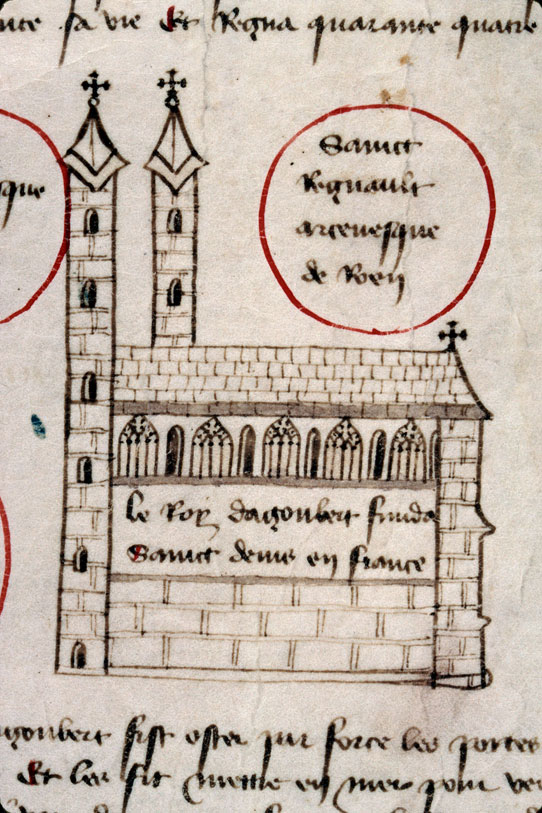 sa vie Et Regna quarante quatre
que
Sainct
Regnault
arcevesque
de Roen
le Roy dagoubert funda
Sainct denis en france
goubert fist oster par force les portes
Et les fit mettre en mer pour